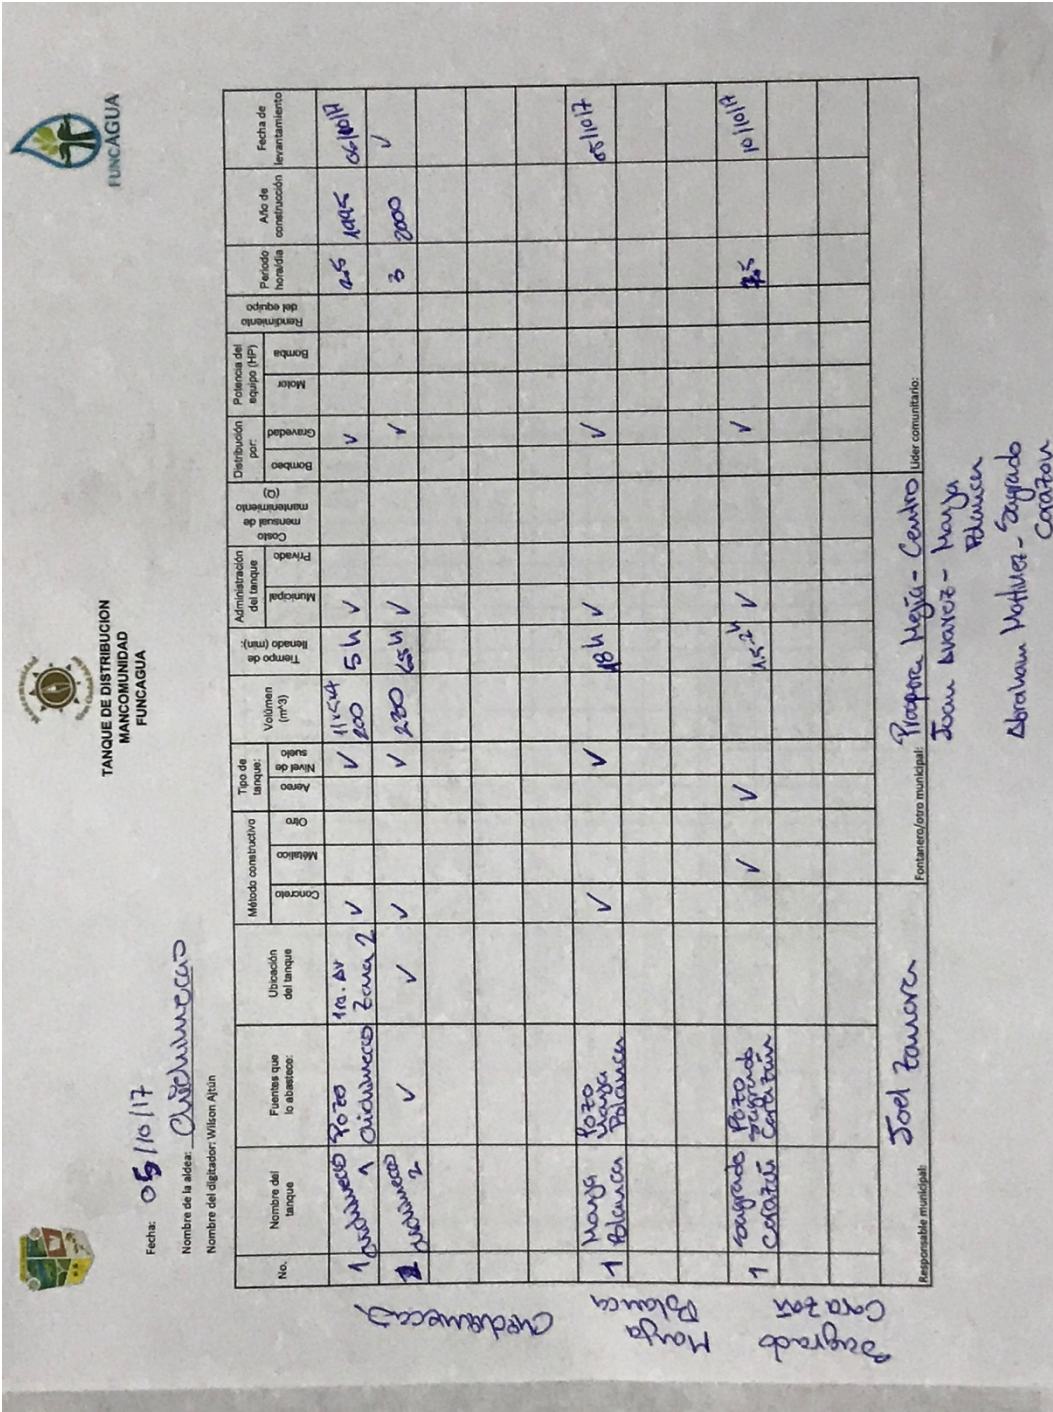 FUNCAGUA
TANQUE DE DISTRIBUCION
MANCOMUNIDAD
FUNCAGUA
Fecha: 05/10/17
Nombre de la aldea: Chichimecas
Nombre del digitador: Wilson Ajtún
No.
Nombre del tanque
Fuentes que lo abastece:
Ubicación del tanque
Método constructivo
Concreto
Métalico
Otro
Tipo de tanque:
Aereo
Nivel de suelo
Volúmen (m^3)
Tiempo de llenado (min):
Administración del tanque
Municipal
Privado
Costo mensual de mantenimiento (Q)
Distribución por:
Bombeo
Gravedad
Potencia del equipo (HP)
Motor
Bomba
Rendimiento del equipo
Periodo hora/dia
Año de construcción
Fecha de levantamiento
Chichimecas
1 Chichimecas 1 Pozo Chichimecas 1ra. Av Zona 2 ✓ ✓ 200 5 h ✓ ✓ 2.5 1995
2 Chichimecas 2 ✓ ✓ ✓ ✓ 230 ✓ ✓ 3 2000 ✓
Maya Polanca
1 Maya Polanca Pozo Maya Polanca ✓ ✓ 18 h ✓ ✓ 05/10/17
Sagrado Corazón
1 Sagrado Corazón Pozo Sagrado Corazón ✓ ✓ ✓ ✓ 10/10/17
Responsable municipal: Joel
Fontanero/otro municipal: Mejía - Centro
Juan Alvarez - Maya Polanca
Abraham Martinez - Sagrado Corazon
Líder comunitario: